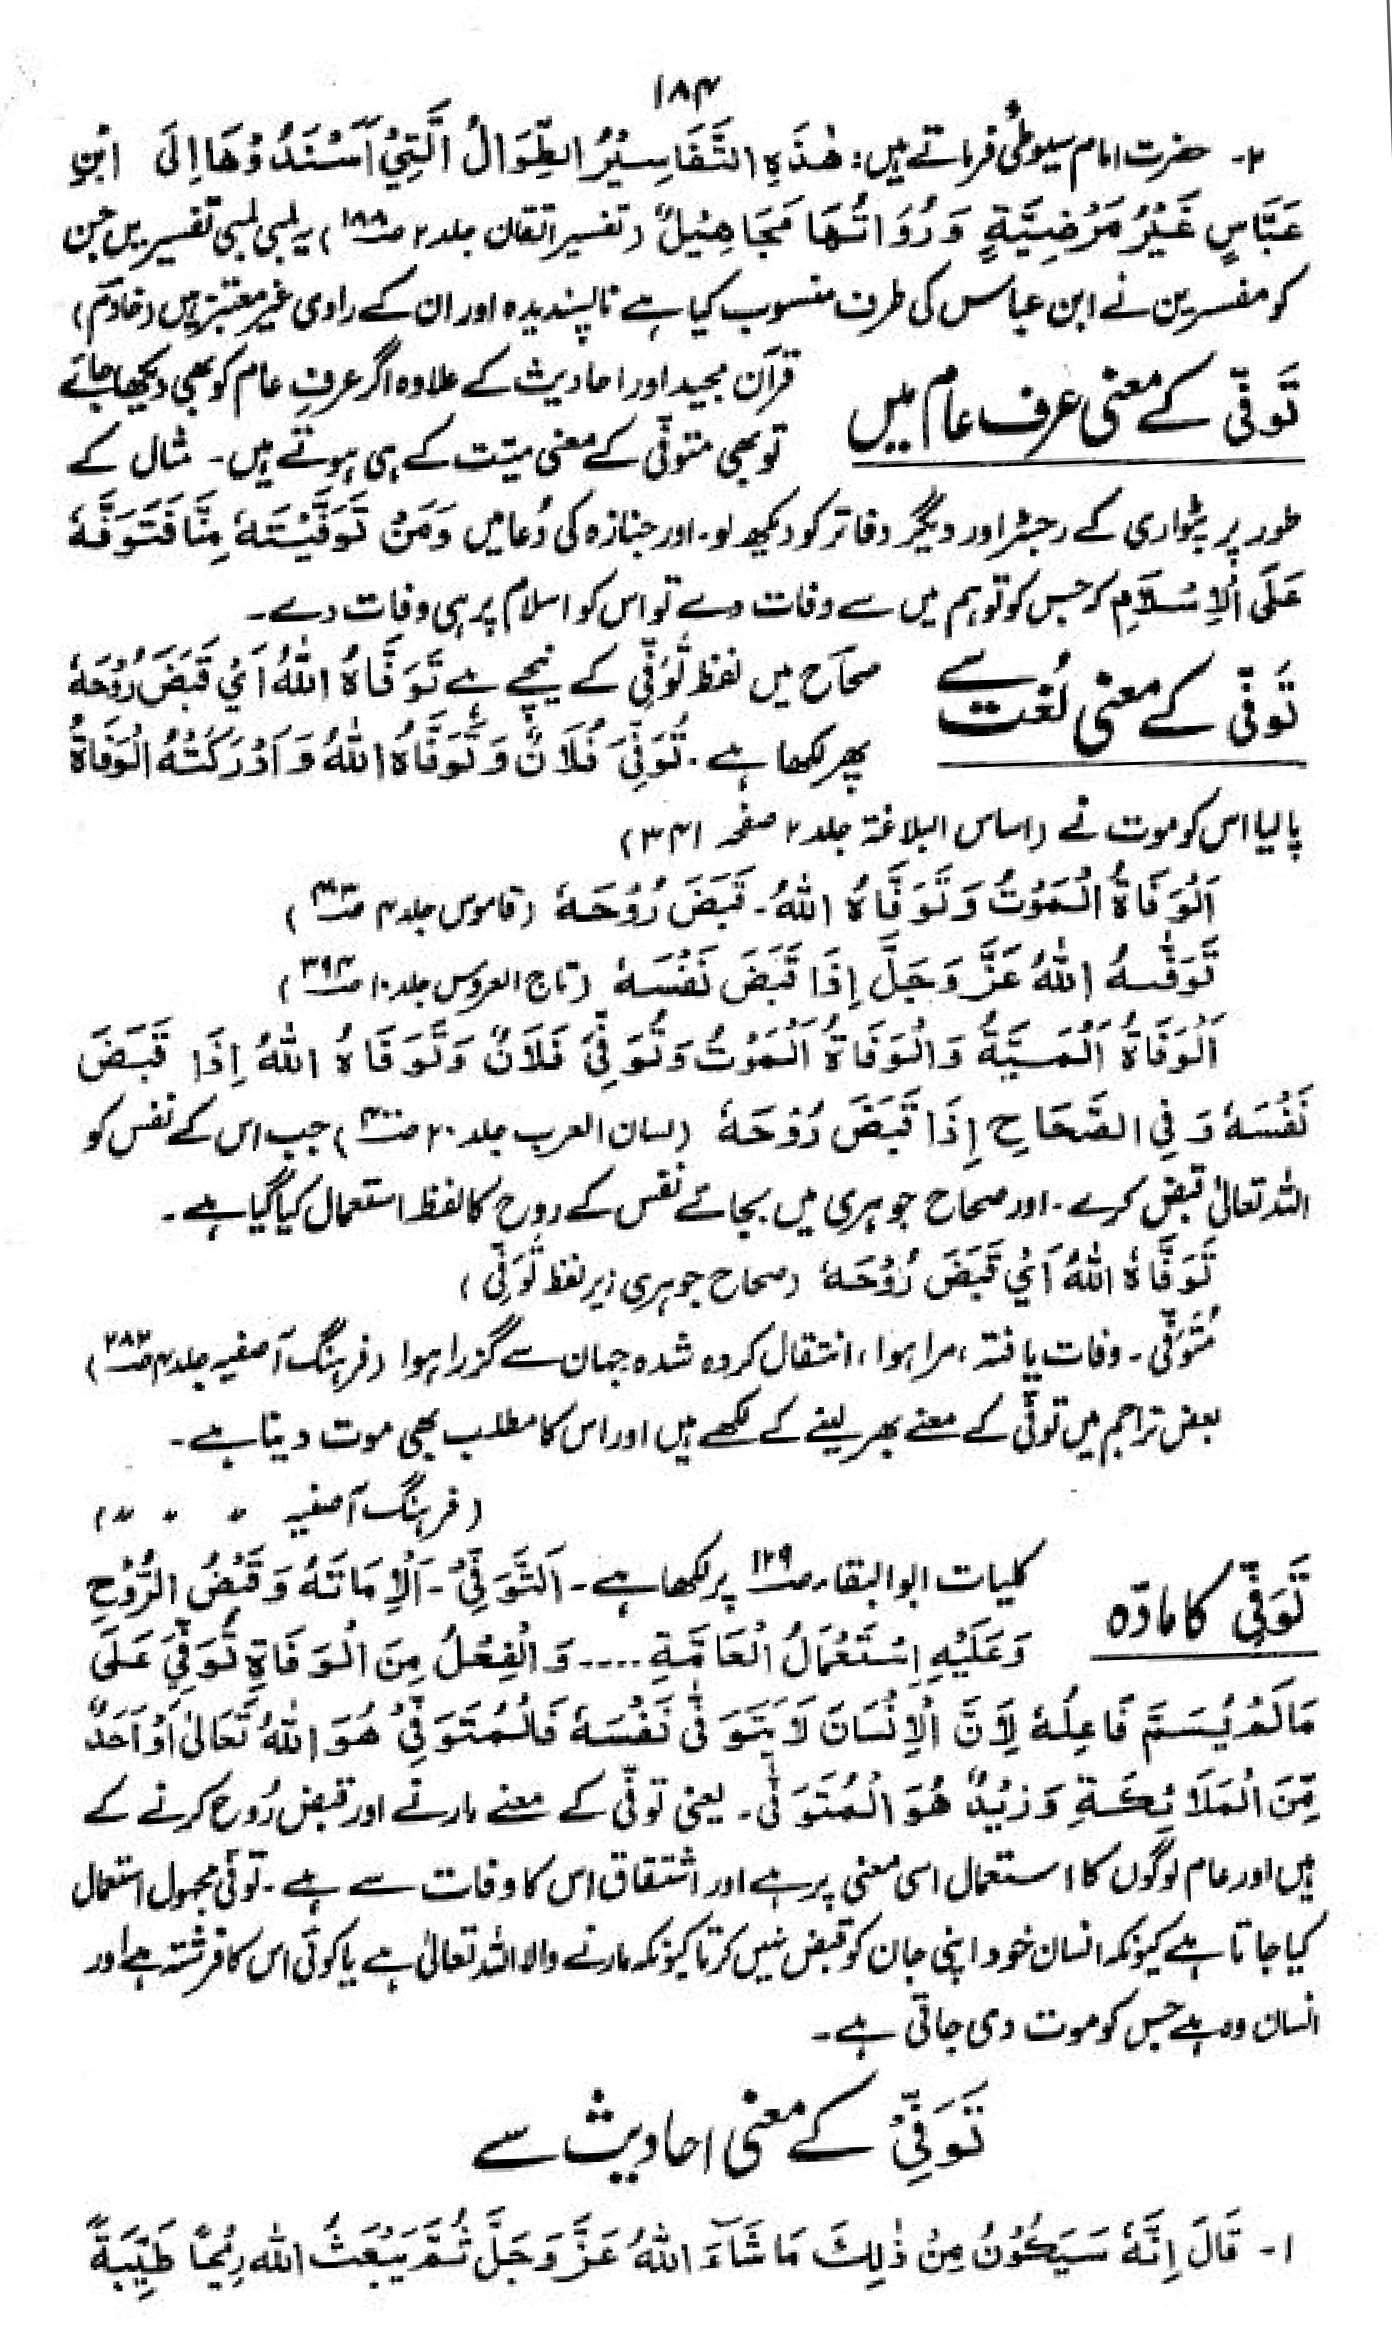 ۱۸۴
۲۔ حضرت امام سیوطیؒ فرماتے ہیں: هٰذِهِ التَّفَاسِيْرُ الطِّوَالُ الَّتِيْ اَسْنَدُوْهَا اِلَى ابْنِ
عَبَّاسٍ غَيْرُ مَرْضِيَّةٍ وَرُوَاتُهَا مَجَاهِيْلُ (تفسیر اتقان جلد ۲ صـ۱۸۸) یہ لمبی لمبی تفسیریں جن
کو مفسرین نے ابن عباس کی طرف منسوب کیا ہے ناپسندیدہ اور ان کے راوی غیر معتبر ہیں (خادم)
تَوَفِّی کے معنی عرف عام میں
قرآن مجید اور احادیث کے علاوہ اگر عرفِ عام کو بھی دیکھا جائے
تو بھی متوفّی کے معنی میّت کے ہی ہوتے ہیں۔ مثال کے
طور پر پٹواری کے رجسٹر اور دیگر دفاتر کو دیکھ لو۔ اور جنازہ کی دُعا میں وَمَنْ تَوَفَّيْتَهٗ مِنَّا فَتَوَفَّهٗ
عَلَى الْاِسْلَامِ کہ جس کو تو ہم میں سے وفات دے تو اس کو اسلام پر ہی وفات دے۔
تَوَفِّی کے معنی لُغت سے
صحاح میں لفظ تُوُفِّی کے نیچے ہے تَوَفَّاهُ اللهُ اَيْ قَبَضَ رُوْحَهٗ
پھر لکھا ہے۔ تُوُفِّيَ فُلَانٌ وَتَوَفَّاهُ اللهُ وَاَدْرَكَتْهُ الْوَفَاةُ
پا لیا اس کو موت نے (اساس البلاغۃ جلد ۲ صفحہ ۳۴۱)
اَلْوَفَاةُ الْمَوْتُ وَتَوَفَّاهُ اللهُ۔ قَبَضَ رُوْحَهٗ (قاموس جلد ۴ صـ)
تَوَفّٰهُ اللهُ عَزَّ وَجَلَّ اِذَا قَبَضَ نَفْسَهٗ (تاج العروس جلد ۱۰ صـ۳۹۴)
اَلْوَفَاةُ الْمَنِيَّةُ وَالْوَفَاةُ الْمَوْتُ وَتُوُفِّيَ فُلَانٌ وَتَوَفَّاهُ اللهُ اِذَا قَبَضَ
نَفْسَهٗ وَفِي الصِّحَاحِ اِذَا قَبَضَ رُوْحَهٗ (لسان العرب جلد ۲۰ صـ) جب اس کے نفس کو
اللہ تعالیٰ قبض کرے۔ اور صحاح جوہری میں بجائے نفس کے روح کا لفظ استعمال کیا گیا ہے۔
تَوَفَّاهُ اللهُ اَيْ قَبَضَ رُوْحَهٗ (صحاح جوہری زیر لفظ تُوُفِّی)
مُتَوَفّٰی۔ وفات یافتہ، مرا ہوا، انتقال کردہ شدہ، جہان سے گزرا ہوا (فرہنگ آصفیہ جلد ۴ صـ۲۸۲)
بعض تراجم میں توفّی کے معنے بھر لینے کے لکھے ہیں اور اس کا مطلب بھی موت دینا ہے۔
(فرہنگ آصفیہ 〃 〃 〃)
تَوَفِّی کا مادّہ
کلیات ابوالبقاء صـ۱۲۹ پر لکھا ہے۔ اَلتَّوَفِّيْ۔ اَلْاِمَاتَةُ وَقَبْضُ الرُّوْحِ
وَعَلَيْهِ اسْتِعْمَالُ الْعَامَّةِ .... وَالْفِعْلُ مِنَ الْوَفَاةِ تُوُفِّيَ عَلٰى
مَالَمْ يُسَمَّ فَاعِلُهٗ لِاَنَّ الْاِنْسَانَ لَا يَتَوَفّٰى نَفْسَهٗ فَالْمُتَوَفِّيْ هُوَ اللهُ تَعَالٰى اَوْ اَحَدٌ
مِّنَ الْمَلَائِكَةِ وَزَيْدٌ هُوَ الْمُتَوَفّٰى۔ یعنی توفّی کے معنے مارنے اور قبض رُوح کرنے کے
ہیں اور عام لوگوں کا استعمال اسی معنی پر ہے اور اشتقاق اس کا وفات سے ہے۔ تُوُفِّیَ مجہول استعمال
کیا جاتا ہے کیونکہ انسان خود اپنی جان کو قبض نہیں کرتا کیونکہ مارنے والا اللہ تعالیٰ ہے یا کوئی اس کا فرشتہ ہے اور
انسان وہ ہے جس کو موت دی جاتی ہے۔
تَوَفِّیْ کے معنی احادیث سے
۱۔ قَالَ اِنَّهٗ سَيَكُوْنُ مِنْ ذٰلِكَ مَا شَآءَ اللهُ عَزَّ وَجَلَّ ثُمَّ يَبْعَثُ اللهُ رِيْحًا طَيِّبَةً